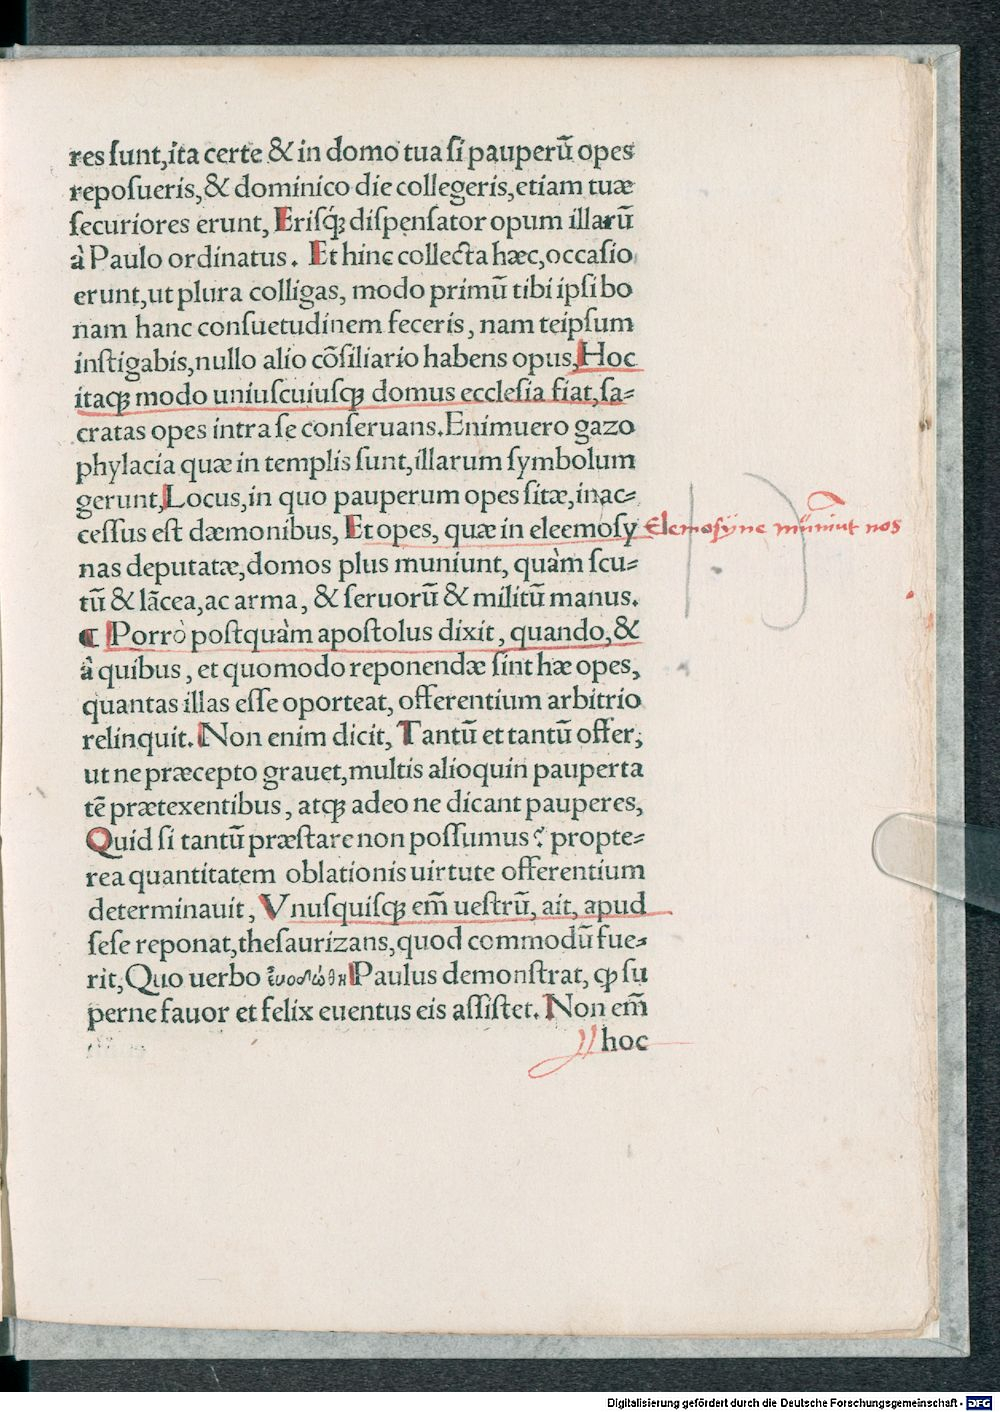 res ſunt,ita certe & in domo tua ſi pauperũ opes
repoſueris,& dominico die collegeris,etiam tuæ
ſecuriores erunt, Eriſq́ꝫ diſpenſator opum illarũ
à Paulo ordinatus. Et hinc collecta hæc,occaſio
erunt,ut plura colligas, modo primũ tibi ipſi bo
nam hanc conſuetudinem feceris, nam teipſum
inſtigabis,nullo alio cõſiliario habens opus,Hoc
itaqꝫ modo uniuſcuiuſqꝫ domus eccleſia fiat,ſa⸗
cratas opes intra ſe conſeruans.Enimuero gazo
phylacia quæ in templis ſunt,illarum ſymbolum
gerunt,Locus,in quo pauperum opes ſitæ,inac⸗
ceſſus eſt dæmonibus, Et opes, quæ in eleemoſy
Elemosÿne mũniũt nos
nas deputatæ,domos plus muniunt, quàm ſcu⸗
tũ & lãcea,ac arma, & ſeruorũ & militũ manus.
¶ Porrò poſtquàm apoſtolus dixit, quando,&
à quibus, et quomodo reponendæ ſint hæ opes,
quantas illas eſſe oporteat, offerentium arbitrio
relinquit. Non enim dicit, Tantũ et tantũ offer,
ut ne præcepto grauet,multis alioquin pauperta
tẽ prætexentibus, atqꝫ adeo ne dicant pauperes,
Quid ſi tantũ præſtare non poſſumus? propte⸗
rea quantitatem oblationis uirtute offerentium
determinauit, Vnuſquiſqꝫ em̃ ueſtrũ, ait, apud
ſeſe reponat,theſaurizans,quod commodũ fue⸗
rit,Quo uerbo ἐυοδώθη Paulus demonſtrat, ꝙ ſu
perne fauor et felix euentus eis aſſiſtet. Non em̃
hoc
Digitalisierung gefördert durch die Deutsche Forschungsgemeinschaft - DFG